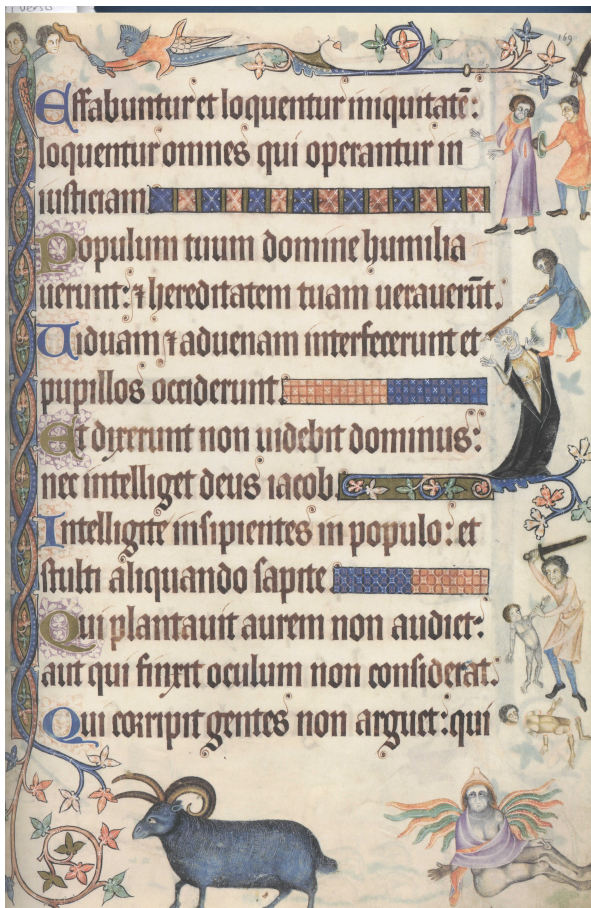 versis
169
Effabuntur et loquentur iniquitatē:
loquentur omnes qui operantur in
iusticiam.
Populum tuum domine humilia
uerunt: ⁊ hereditatem tuam uexauerūt.
Uiduam ⁊ aduenam interfecerunt et
pupillos occiderunt.
Et dixerunt non uidebit dominus:
nec intelliget deus iacob.
Intelligite insipientes in populo: et
stulti aliquando sapite.
Qui plantauit aurem non audiet:
aut qui finxit oculum non considerat.
Qui corripit gentes non arguet: qui